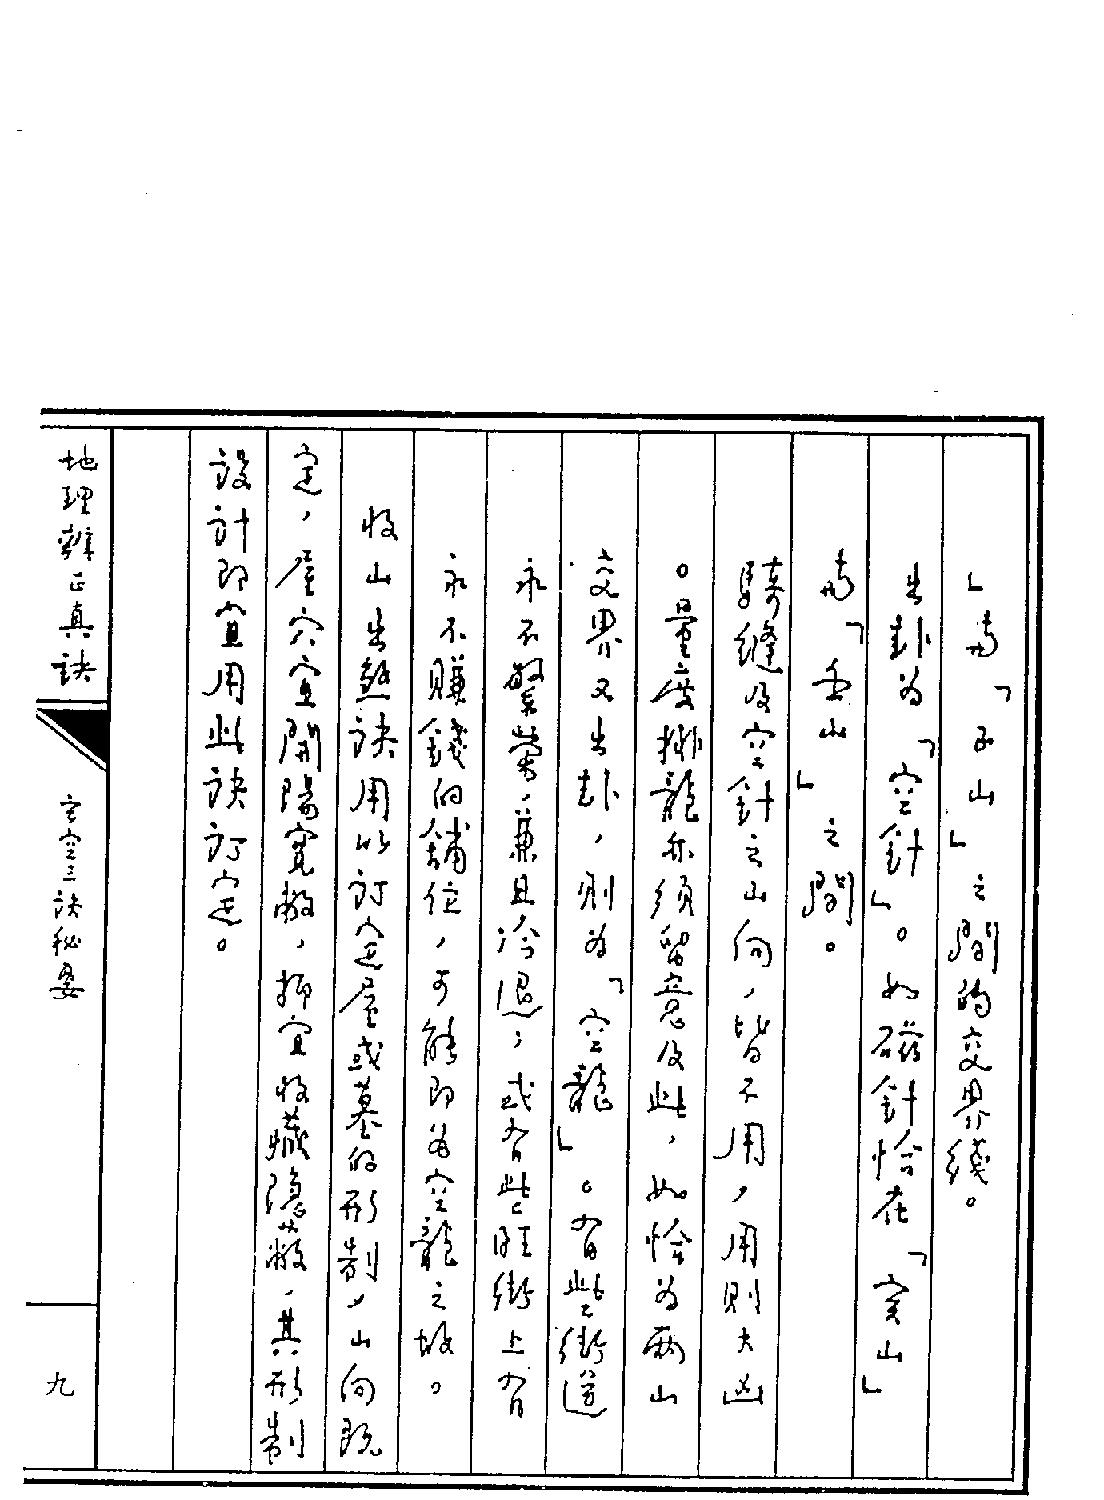 」與「子山」之間的交界綫。
出卦為「空針」。如磁針恰在「亥山」
與「壬山」之間。
騎縫及空針之山向，皆不用，用則大凶
。量度排龍亦須留意及此，如恰為兩山
交界又出卦，則為「空龍」。有些街道
永不繁榮，兼且冷退，或有些旺街上有
永不賺錢的舖位，可能即為空龍之故。
收山出煞訣用以訂定屋或墓的形制，山向既
定，屋穴宜開陽寬敞，抑宜收藏隱蔽，其形制
設計即宜用此訣訂定。
地理辨正真訣
玄空三訣秘要
九